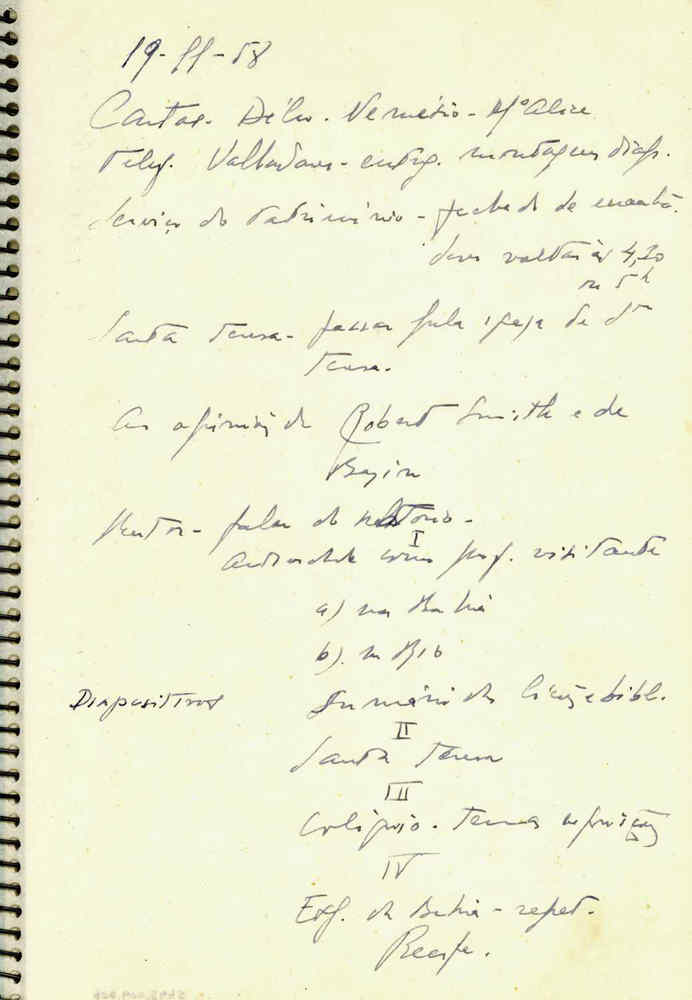 19-11-58
Cartas - Délio - Nemésio - Mª Alice
Telef. Valladares - entreg. montagem diaps.
Serviço do Património - fechado de manhã.
devo voltar às 4,30
ou 5h
Santa Teresa - passar pela igreja de Sta
Teresa.
As opiniões de Robert Smith e de
Bazin
Reitor - falar do relatório -
I
Actividade como prof. visitante
a) na Bahia
b) no Rio
Diapositivos Sumário das lições e bibl.
II
Santa Teresa
III
Colóquio - temas
IV
Exp. da Bahia - repet.
Recife.